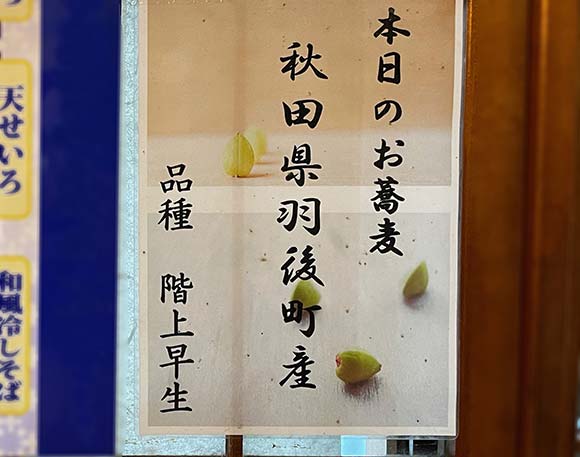 本日のお蕎麦
秋田県羽後町産
品種 階上早生
天せいろ
和風冷しそば